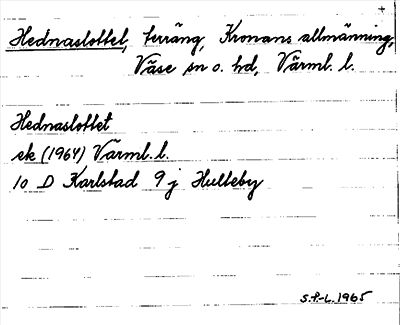 +
Hednaslottet, terräng, Kronans allmänning,
Väse sn o. hd, Värml. l.
Hednaslottet
ek (1964) Värml. l.
10 D Karlstad 9 j Hulteby
S.P-L. 1965